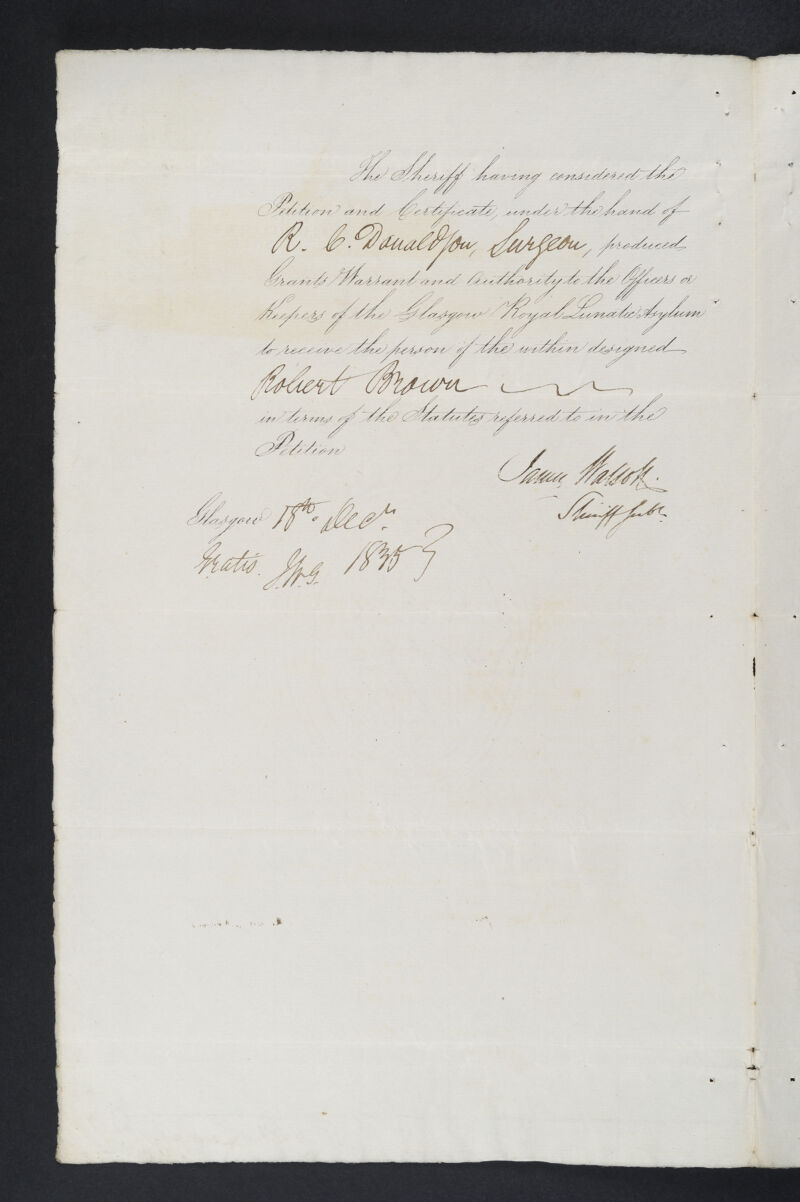 The Sheriff having considered the
Petition and Certificate, under the hand of
R. C. Donaldson, Surgeon, produced
Grants Warrant and Authority to the Officers or
Keepers of the Glasgow Royal Lunatic Asylum
to receive the person of the within designed
Robert Brown
in terms of the Statutes referred to in the
Petition
James Watson
Sheriff Subt.
Glasgow 18th Decr
Gratis. J.W.G. 1835